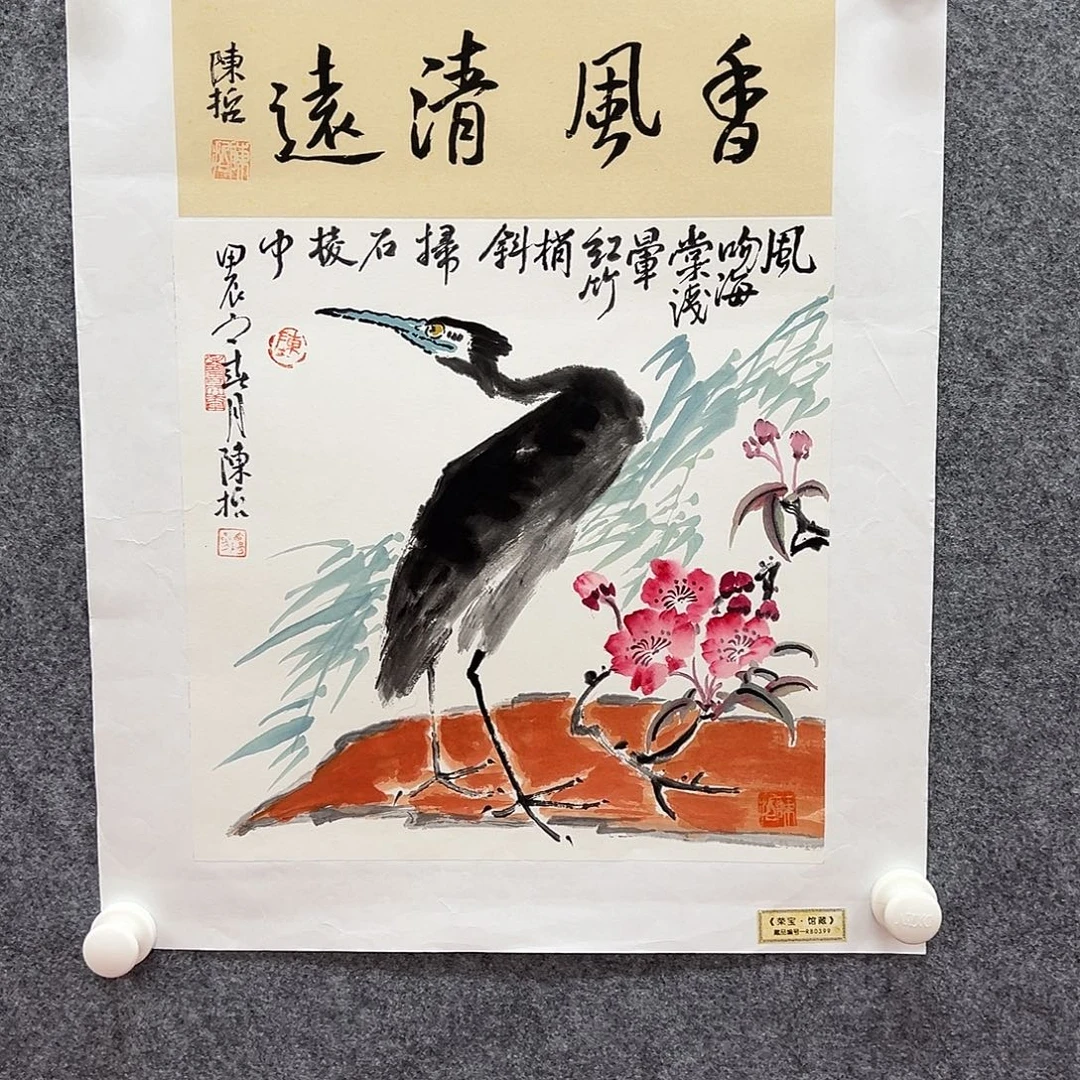 香風清遠
陳哲
風吻海棠淺暈紅竹梢斜掃石棱中
甲辰之春月陳哲
陳
《荣宝·馆藏》
藏品编号—RB0399